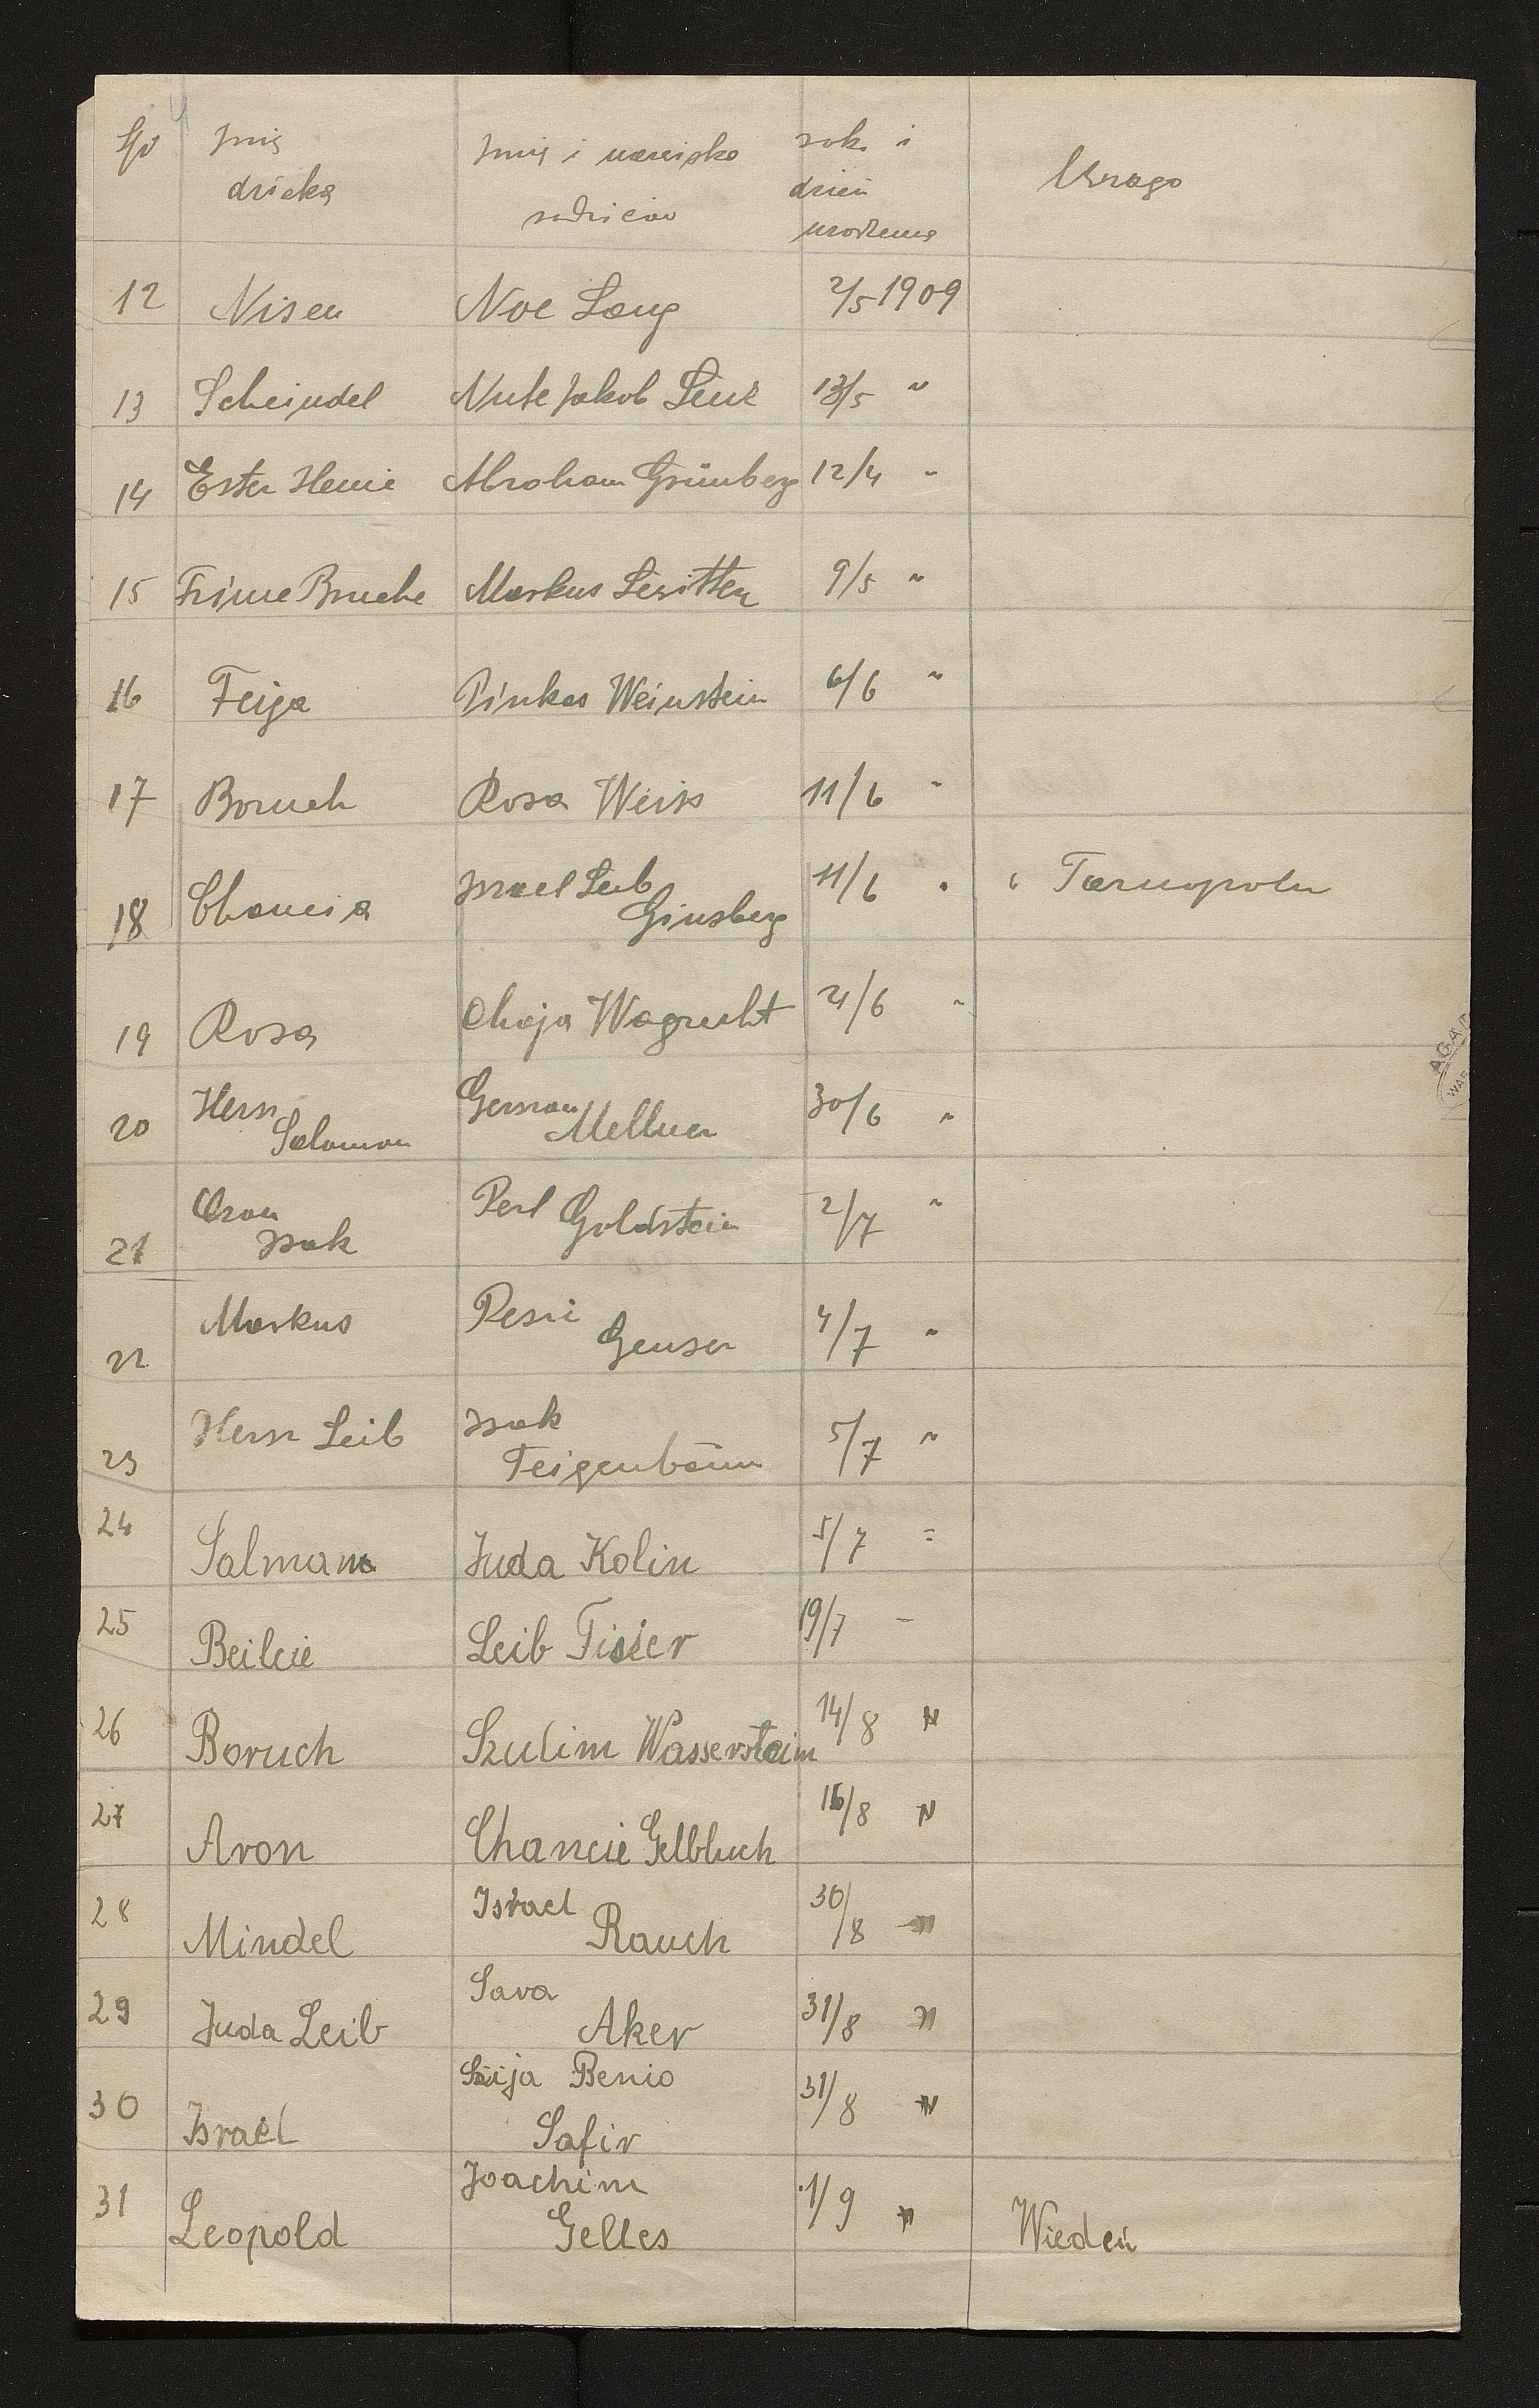 Lp imię imię i nazwisko rok i Uwaga
dziecka rodziców dzień
urodzenia
12 Nisen Noe Lang 2/5 1909
13 Scheindel Nute Jakob Leuz 13/5 "
14 Ester Henie Abraham Grünberg 12/4 "
15 Frime Bruche Markus Lewitter 9/5 "
16 Feiga Pinkas Weinstein 6/6 "
17 Boruch Rosa Weiss 11/6 "
18 Chancia Israel Leib 11/6 " Tarnopolu
Ginsberg
19 Rosa Chaja Wagrecht 21/6 "
20 Hersz Gerson 30/6 "
Salomon Mellner
21 Aron Perl Goldstein 2/7 "
Isak
22 Markus Pesie 4/7 "
Genser
23 Hersz Leib Isak 5/7 "
Feigenbaum
24 Salman Juda Kolin 5/7 "
25 Beilcie Leib Fisier 19/7 "
26 Boruch Szulim Wasserstein 14/8 "
27 Aron Chancie Gelbluch 16/8 "
28 Mindel Israel 30/8 "
Rauch
29 Juda Leib Sara 31/8 "
Aker
30 Israel Benio 31/8 "
Safir
31 Leopold Joachim 1/9 " Wiedeń
Gelles
AGAD
WAR